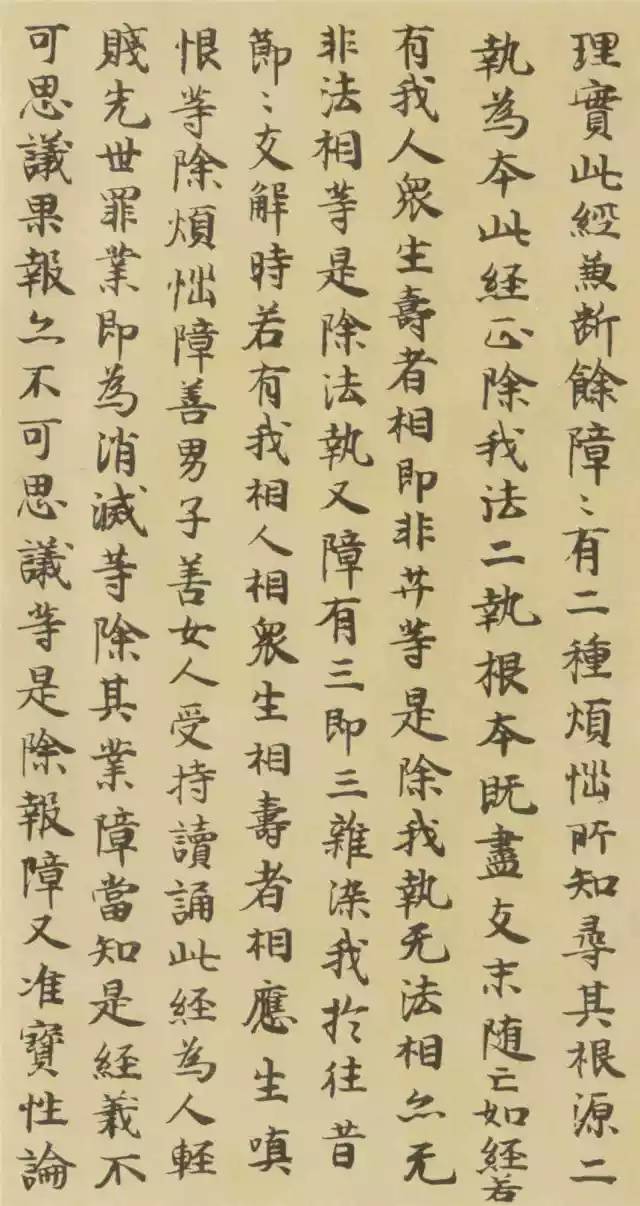 理實此經兼断餘障〻有二種煩惱所知尋其根源二
執為本此経正除我法二執根本既盡支末随亡如経若
有我人衆生壽者相即非菩薩等是除我執无法相亦无
非法相等是除法執又障有三即三雜染我於往昔
節〻支解時若有我相人相衆生相壽者相應生嗔
恨等除煩惱障善男子善女人受持讀誦此経為人輕
賤先世罪業即為消滅等除其業障當知是経義不
可思議果報亦不可思議等是除報障又准寶性論